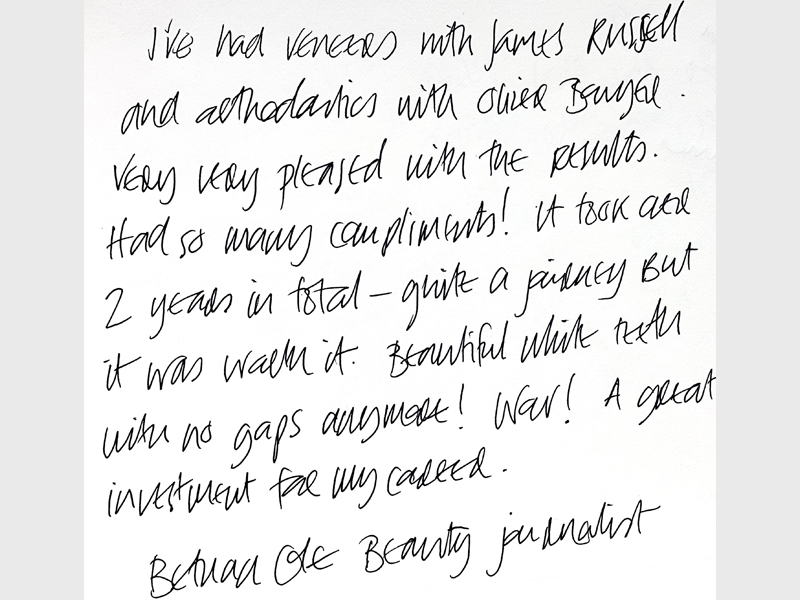 I've had veneers with James Russell
and orthodontics with Oliver
very very pleased with the results.
Had so many compliments! It took over
2 years in total – quite a journey but
it was worth it. Beautiful white teeth
with no gaps anymore! Wow! A great
investment for my career.
Bethan Cole Beauty journalist